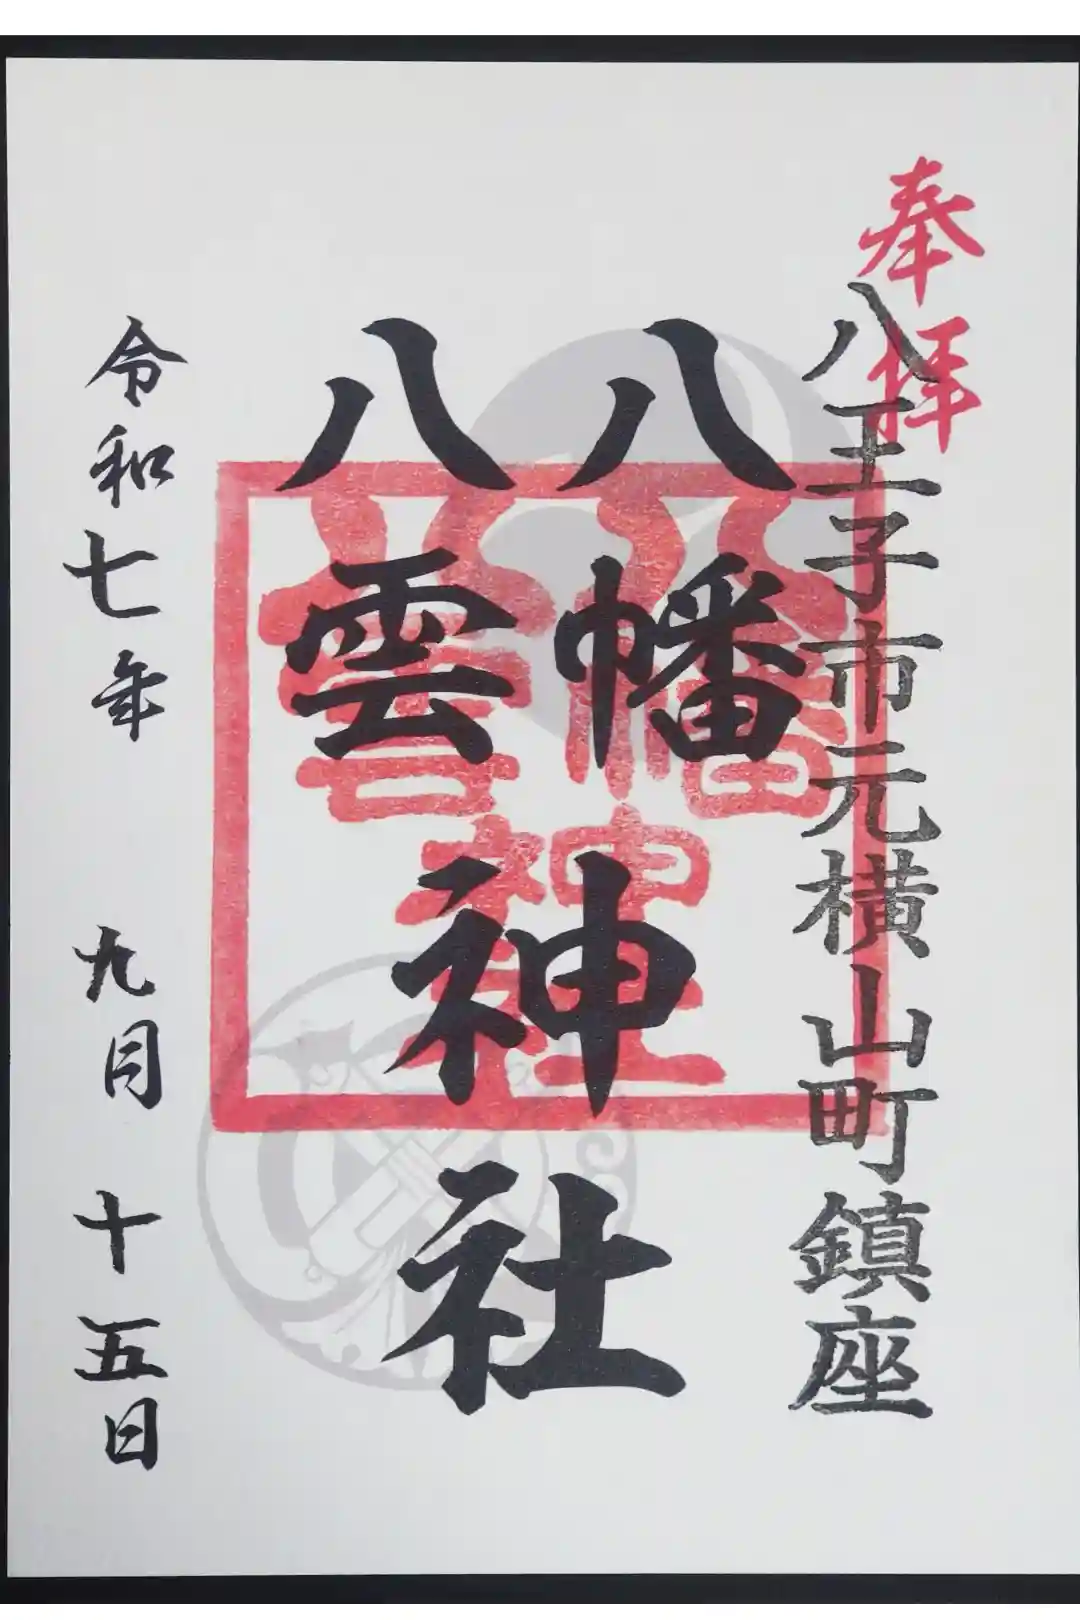 奉拝
八王子市元横山町鎮座
八幡
八雲
神社
八幡
八雲
神社
令和七年 九月 十五日